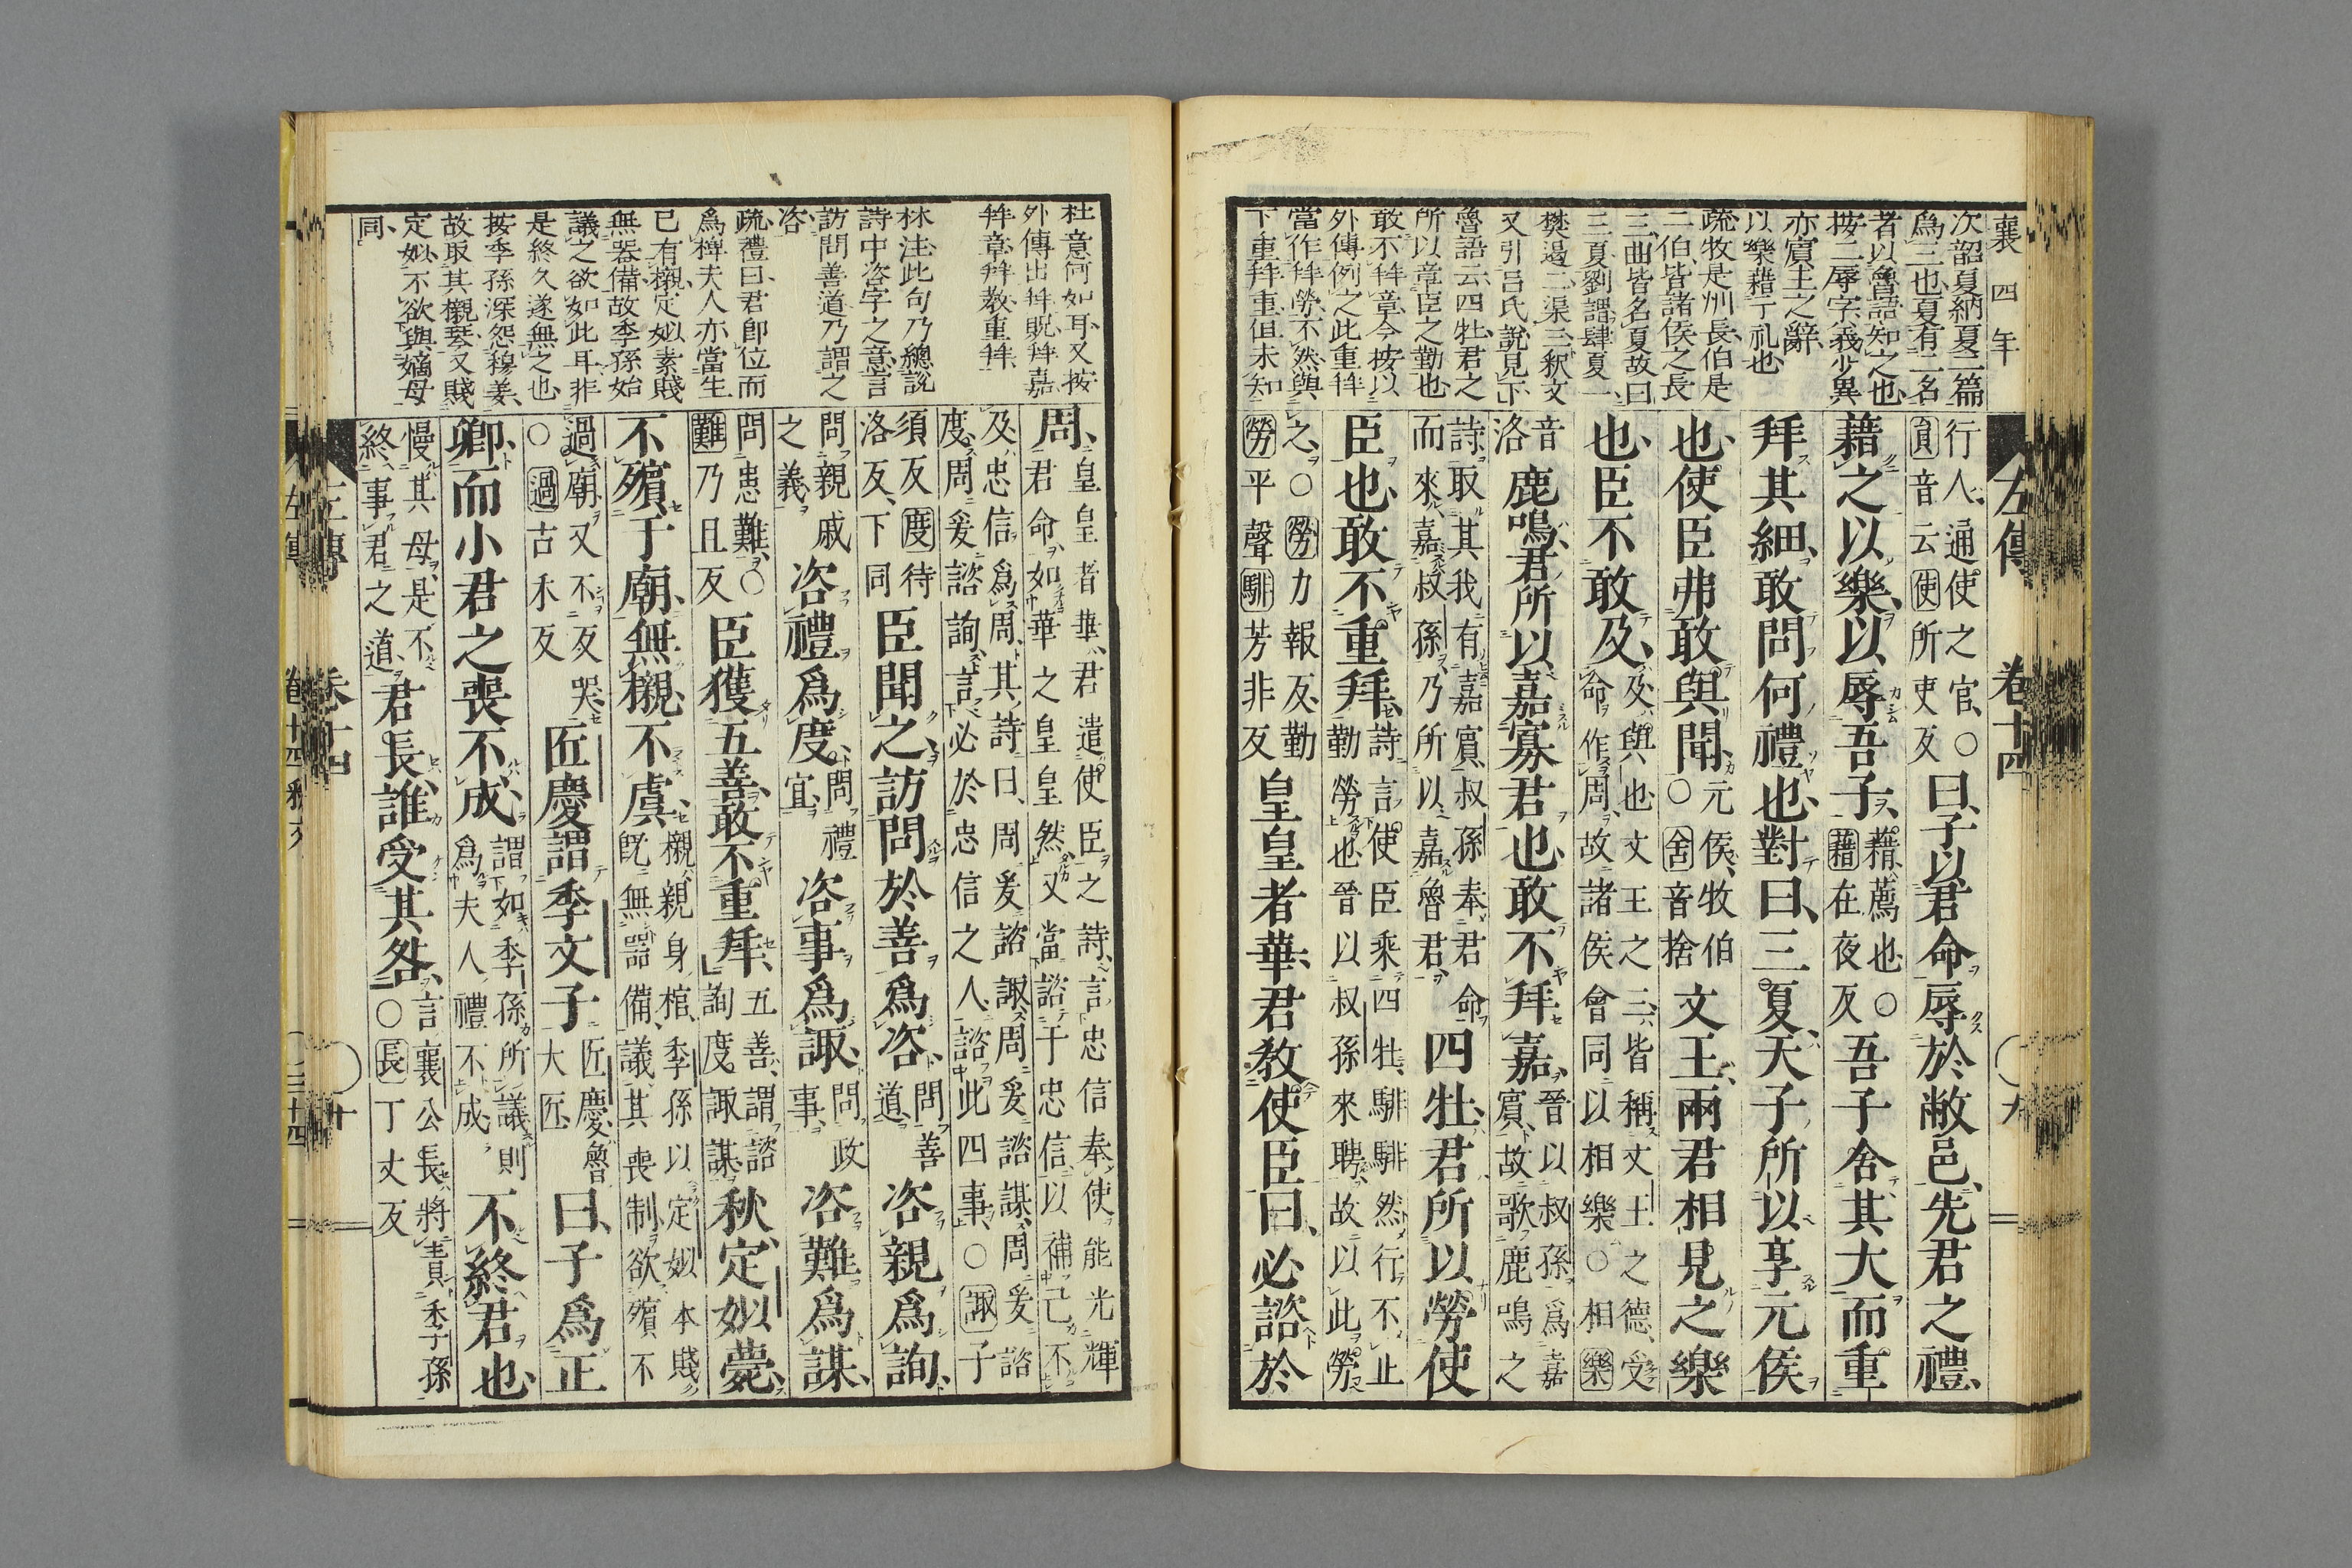 襄四年
次韶夏納夏二篇
爲三也夏有二名
者以魯語知之也
按二辱字義少異
亦賓主之辭
以樂藉亍礼也
疏牧是州長伯是
二伯皆諸侯之長
三曲皆名夏故曰
三夏劉謂肆夏一
樊遏二渠三釈文
又引呂氏說見下
魯語云四牡君之
所以章臣之勤也
敢不拜章今按以
外傳例之此重拜
當作拜勞不然與
下重拜重但未知
左傳 卷十四 九
行人通使之官○
貟音云使所吏反
曰子以君命辱於敝邑先君之禮
藉之以樂以辱吾子
藉薦也○
藉在夜反
吾子舍其大而重
拜其細敢問何禮也對曰三夏天子所以享元侯
也使臣弗敢與聞
元侯牧伯
○舍音捨
文王兩君相見之樂
也臣不敢及
及與也文王之三皆稱文王之德受
命作周故諸侯會同以相樂○相樂
音
洛
鹿鳴君所以嘉寡君也敢不拜嘉
晉以叔孫爲嘉
賓故歌鹿鳴之
詩取其我有嘉賓叔孫奉君命
而來嘉叔孫乃所以嘉魯君
四牡君所以勞使
臣也敢不重拜
詩言使臣乘四牡騑騑然行不止
勤勞也晉以叔孫來聘故以此勞
之○勞力報反勤
勞平聲騑芳非反
皇皇者華君教使臣曰必諮於
杜意何如耳又按
外傳出拜貺拜嘉
拜章拜教重拜
林注此句乃總說
詩中咨字之意言
訪問善道乃謂之
咨
疏禮曰君卽位而
爲椑夫人亦當生
已有櫬定姒素賤
無器備故季孫始
議之欲如此耳非
是終久遂無之也
按季孫深怨穆姜
故取其櫬琴又賤
定姒不欲與嫡母
同
周
皇皇者華君遣使臣之詩言忠信奉使能光輝
君命如華之皇皇然又當諮于忠信以補己不
及忠信爲周其詩曰周爰諮諏周爰諮謀周爰諮
度周爰諮詢言必於忠信之人諮此四事○諏子
須反度待
洛反下同
臣聞之訪問於善爲咨
問善
道
咨親爲詢
問親戚
之義
咨禮爲度
問禮
宜
咨事爲諏
問政
事
咨難爲謀
問患難○
難乃旦反
臣獲五善敢不重拜
五善謂諮
詢度諏謀
秋定姒薨
不殯于廟無櫬不虞
櫬親身棺季孫以定姒本賤
旣無器備議其喪制欲殯不
過廟又不反哭
○過古禾反
匠慶謂季文子
匠慶魯
大匠
曰子爲正
卿而小君之喪不成
謂如季孫所議則
爲夫人禮不成
不終君也
慢其母是不
終事君之道
君長誰受其咎
言襄公長將責季孫
○長丁丈反
左傳 卷十四 十